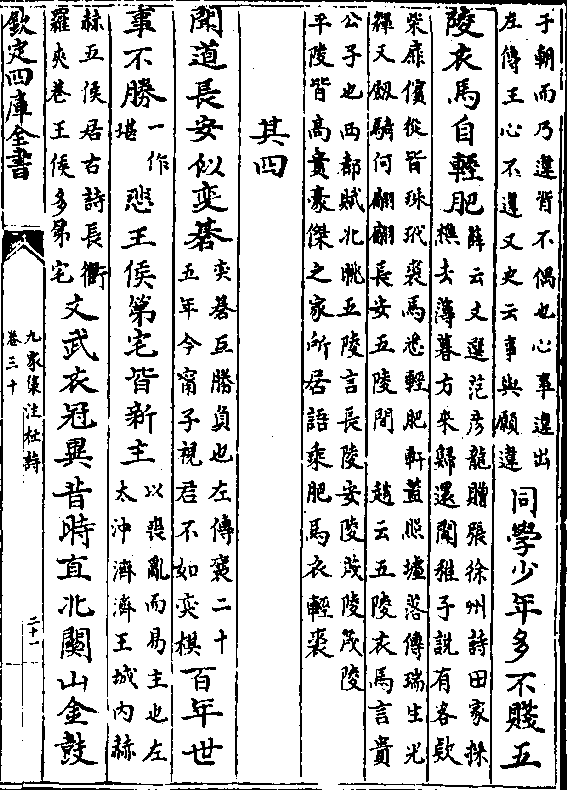 子朝而乃違背不偶也心事違出
左傳王心不違又史云事與願違
同學少年多不賤五
陵衣馬自輕肥
薛云文選范彦龍贈張徐州詩田家採
樵去薄暮方來歸還聞稚子說有客款
柴扉儐從皆珠玳裘馬悉輕肥軒蓋照墟落傳瑞生光
輝又劔騎何翩翩長安五陵間 趙云五陵衣馬言貴
公子也西都賦北眺五陵言長陵安陵陽陵茂陵
平陵皆高貴豪傑之家所居語乘肥馬衣輕裘
其四
聞道長安似奕碁
奕碁互勝負也左傳襄二十
五年今甯子視君不如奕棋
百年世
事不勝
一作
堪
悲王侯第宅皆新主
以喪亂而易主也左
太沖濟濟王城内赫
赫五侯居古詩長衢
羅夾巷王侯多第宅
文武衣冠異昔時直北關山金鼓
欽定四庫全書
九家集注杜詩
卷三十
二十一